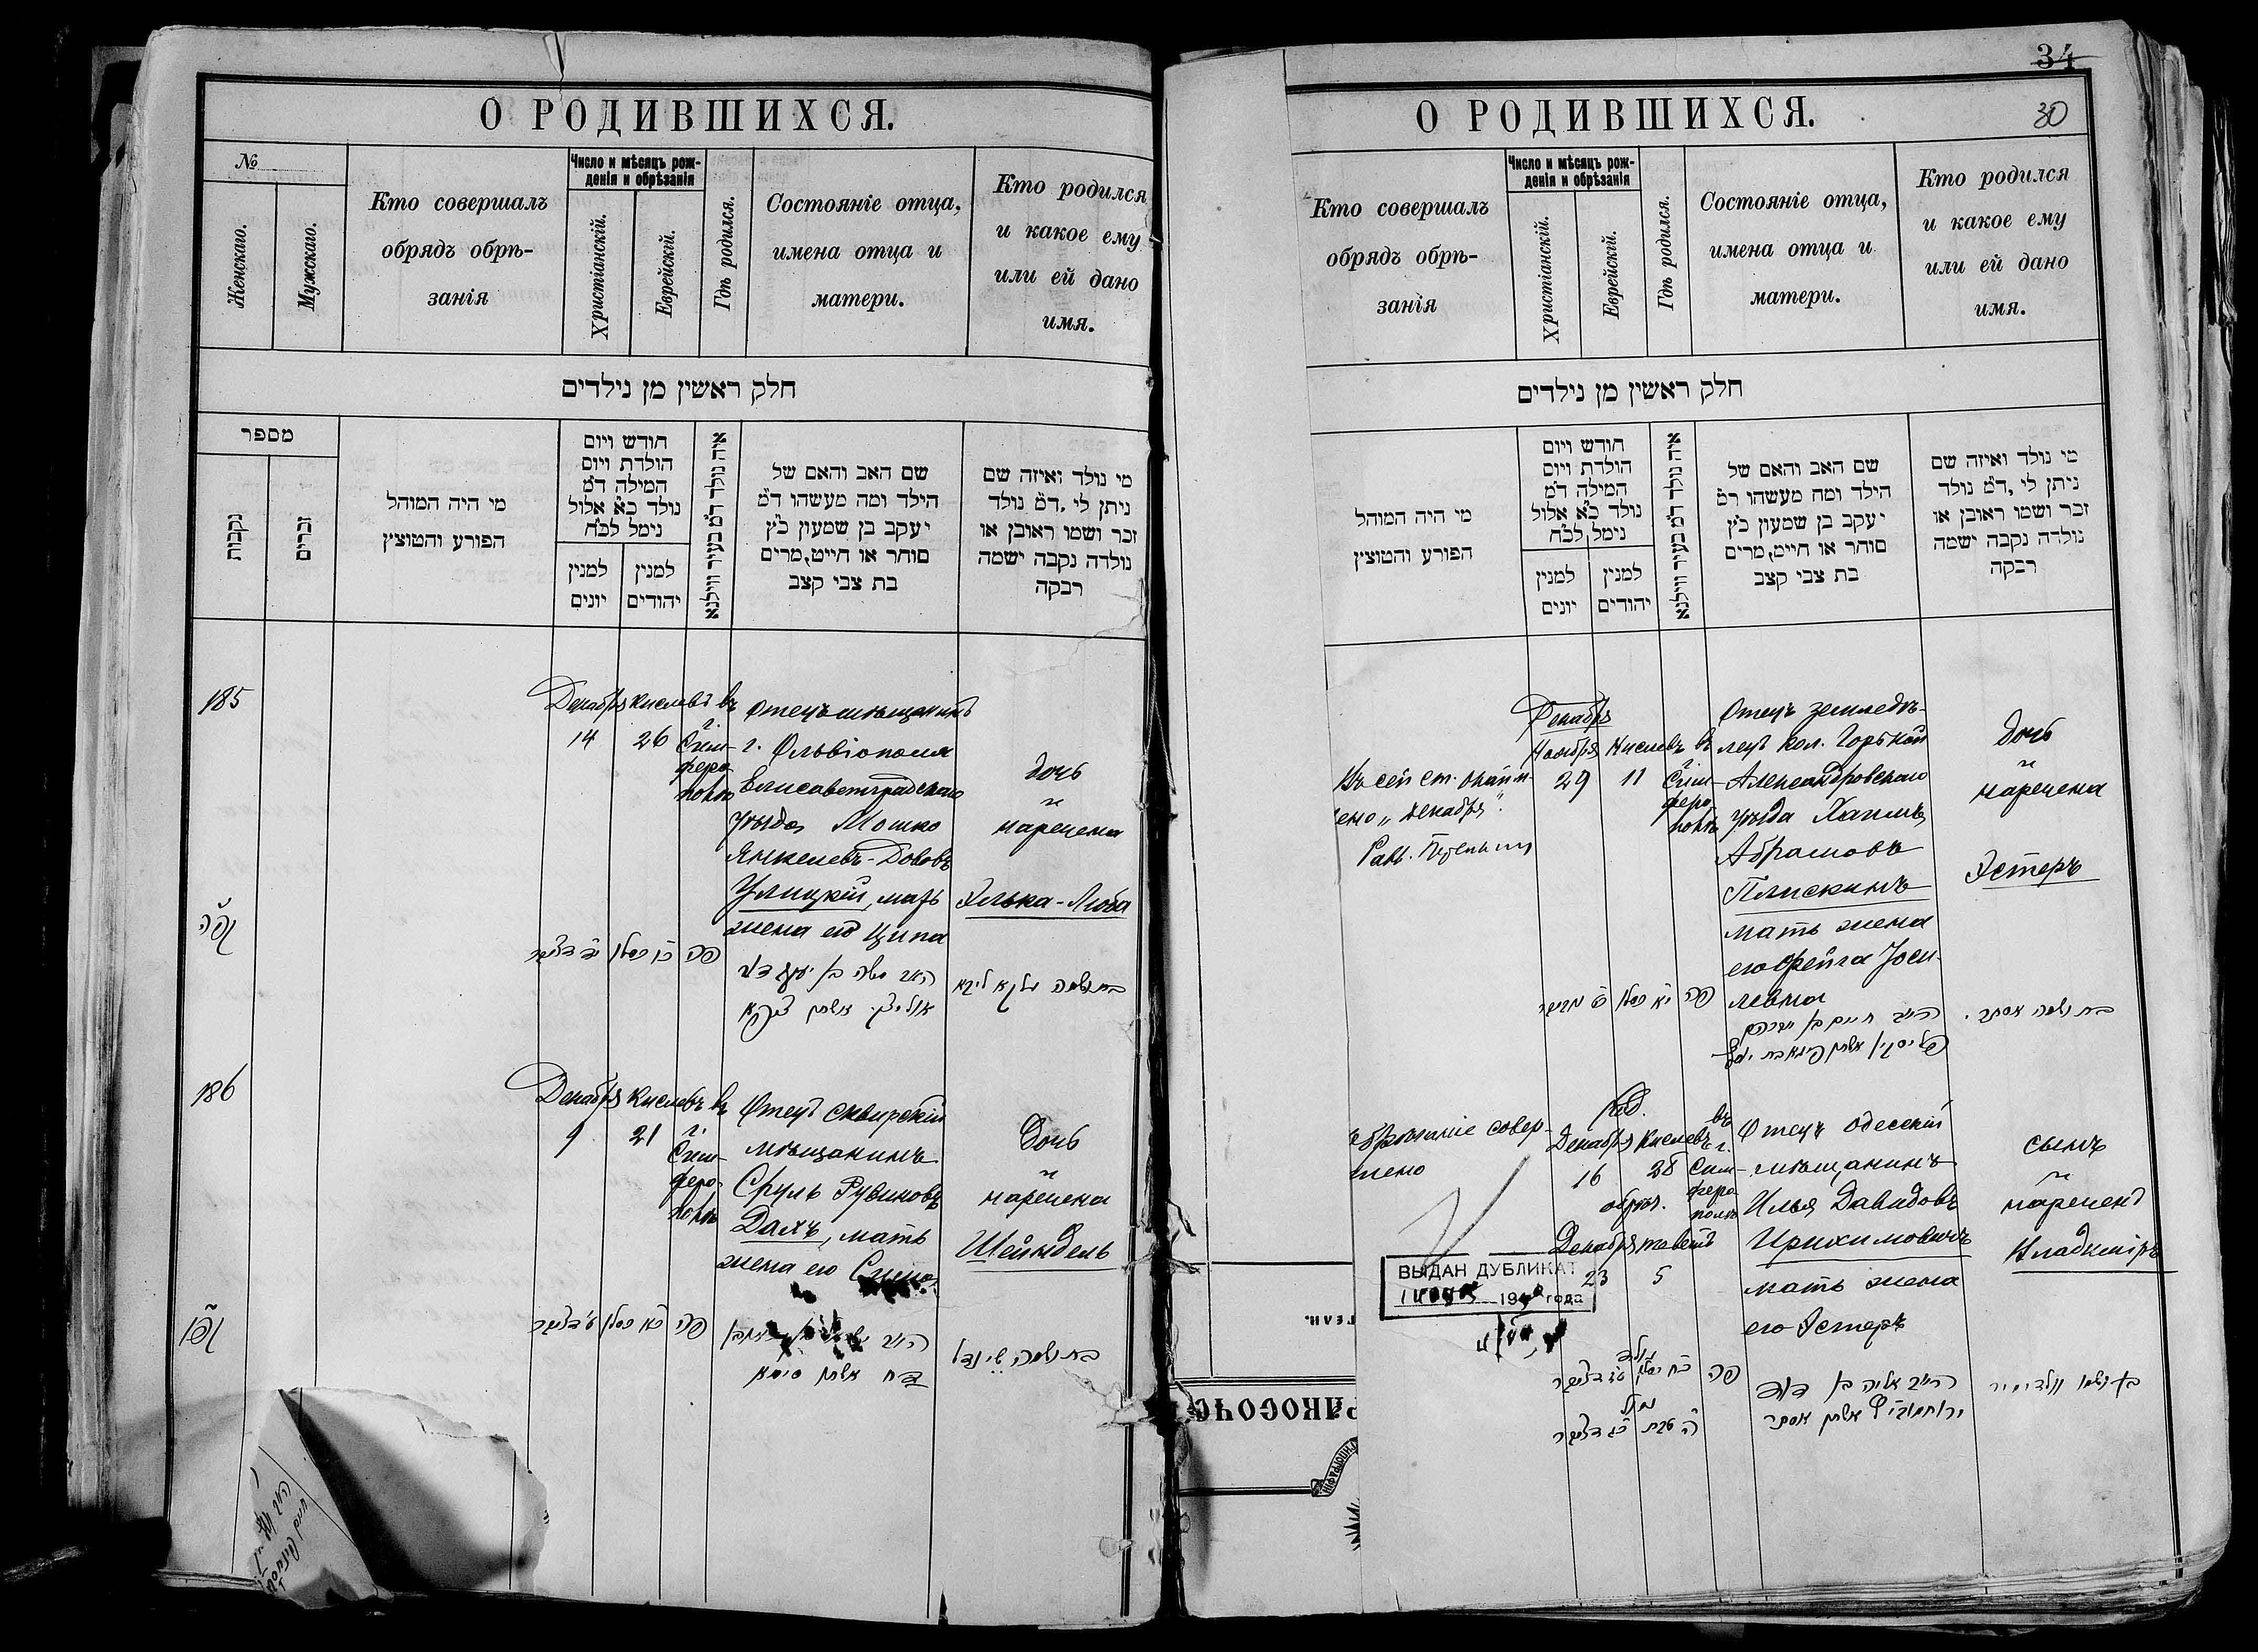 О РОДИВШИХСЯ.
№
Женскаго.
Мужскаго.
Кто совершалъ
обрядъ обрѣ-
занія
Число и мѣсяцъ рож-
денія и обрѣзанія
Христіанскій.
Еврейскій.
Гдѣ родился.
Состояніе отца,
имена отца и
матери.
Кто родился
и какое ему
или ей дано
имя.
חלק ראשין מן נילדים
מספר
נקבות
זכרים
מי היה המוהל
הפורע והמוצץ
חודש ויום
הולדת ויום
המילה ד״מ
נולד כ״א אלול
נימל לכ״ח
למנין
יונים
למנין
יהודים
איה נולד ד״מ בעיר ווילנא
שם האב והאם של
הילד ומה מעשהו ד״מ
יעקב בן שמעון כ״ץ
סוחר או חייט, מרים
בת צבי קצב
מי נולד ואיזה שם
ניתן לי, ד״מ נולד
זכר ושמו ראובן או
נולדה נקבה ישמה
רבקה
185
Декабря Кислевъ въ
14 26 г. Сим-
феро-
полѣ
Отецъ мѣщанинъ
г. Ольвіополя
Елисаветградскаго
уѣзда Мошко
Янкелевъ-Дововъ
Улицкій, мать
жена его Ципа
дочь
наречена
Элька-Люба
פה כ״ו כסלו י״ד דצעמבר
186
Декабря Кислевъ въ
9 21 г. Сим-
феро-
полѣ
Отецъ сквирскій
мѣщанинъ
Сруль Рувиновъ
Дахъ, мать
жена его
Дочь
наречена
Шейндель
פה כ״א כסלו ט׳ דצעמבר
34
О РОДИВШИХСЯ.
30
Кто совершалъ
обрядъ обрѣ-
занія
Число и мѣсяцъ рож-
денія и обрѣзанія
Христіанскій.
Еврейскій.
Гдѣ родился.
Состояніе отца,
имена отца и
матери.
Кто родился
и какое ему
или ей дано
имя.
חלק ראשין מן נילדים
מי היה המוהל
הפורע והמוצץ
חודש ויום
הולדת ויום
המילה ד״מ
נולד כ״א אלול
נימל לכ״ח
למנין
יונים
למנין
יהודים
איה נולד ד״מ בעיר ווילנא
שם האב והאם של
הילד ומה מעשהו ד״מ
יעקב בן שמעון כ״ץ
סוחר או חייט, מרים
בת צבי קצב
מי נולד ואיזה שם
ניתן לי, ד״מ נולד
זכר ושמו ראובן או
נולדה נקבה ישמה
רבקה
Въ сей ст.
„декабря".
Декабря
Ноября Кислевъ въ
29 11 г. Сим-
феро-
полѣ
Отецъ земледѣ-
лецъ кол. Горькой
Александровскаго
уѣзда Хаимъ
Абрамовъ
Плискинъ
мать жена
его Фейга Иоси-
левна
дочь
наречена
Эстеръ
פה י״א כסלו
בת ושמה אסתר.
обрѣзаніе совер-
шено
Декабря Кислевъ въ г.
16 28 Сим-
феро-
полѣ
обрѣз.
Декабря теветъ
23 5
Отецъ одесскій
мѣщанинъ
Илья Давидовъ
Ирихимовичъ
мать жена
его Эстеръ
сынъ
нареченъ
Владиміръ
ВЫДАН ДУБЛИКАТ
194 года
נולד
כ״ח כסלו ט״ז דצעמבר פה
נימל
ה׳ טבת כ״ג דצעמבר
אליה בן דוד
אשתו אסתר
בן ושמו וולדימיר